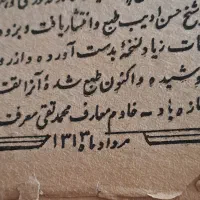 شیخ حسن ادیب طبع و انتشار یافت و بزود
ات زیاد نسخهٔ بدست آورده و از رو
وشیده و اکنون طبع شدهٔ آنرا تقد
ـازه باد - خادم معارف محمد تقی معرفت
مرداد ماه ۱۳۱۳